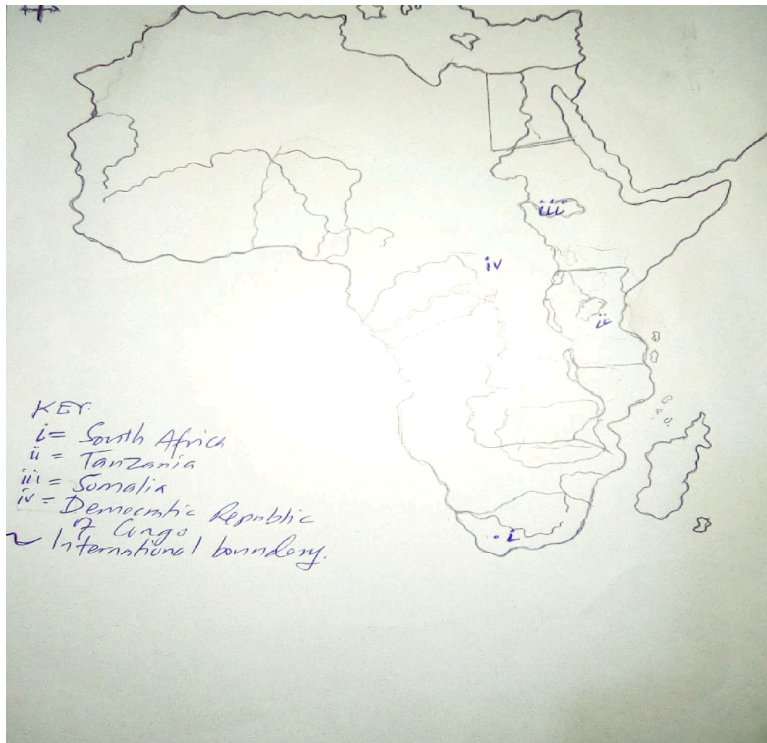 iii
iv
ii
KEY:
i = South Africa
ii = Tanzania
iii = Somalia
iv = Democratic Republic
of Congo
~ International boundary.
i